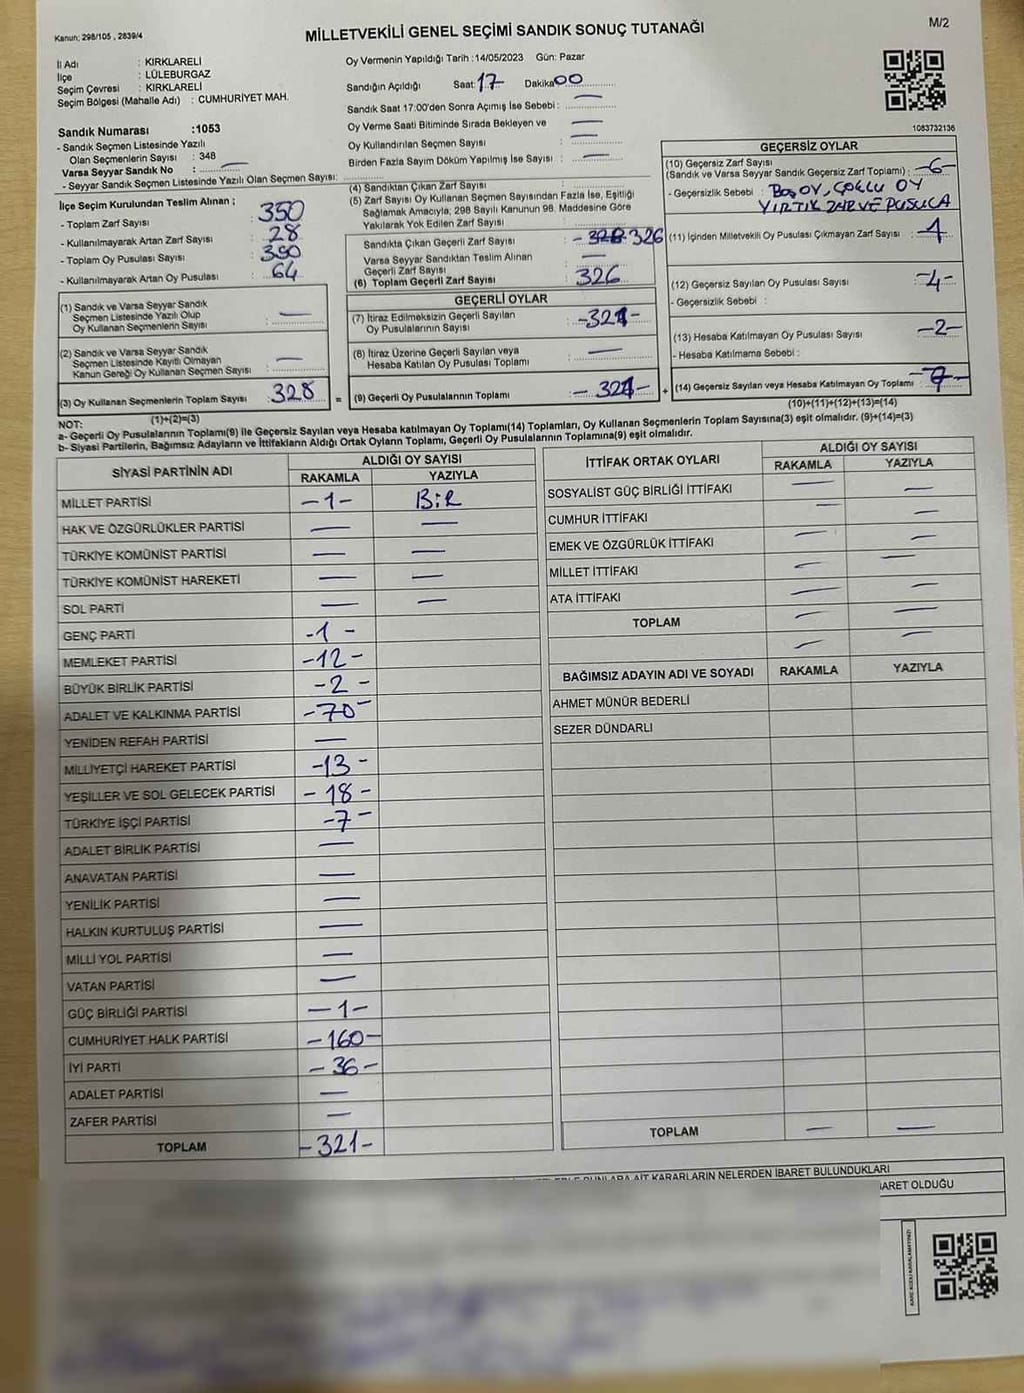 Kanun: 298/105 , 2839/4
MİLLETVEKİLİ GENEL SEÇİMİ SANDIK SONUÇ TUTANAĞI
M/2
İl Adı : KIRKLARELİ
İlçe : LÜLEBURGAZ
Seçim Çevresi : KIRKLARELİ
Seçim Bölgesi (Mahalle Adı) : CUMHURİYET MAH.
Sandık Numarası :1053
- Sandık Seçmen Listesinde Yazılı
Olan Seçmenlerin Sayısı : 348
Varsa Seyyar Sandık No : —
- Seyyar Sandık Seçmen Listesinde Yazılı Olan Seçmen Sayısı:
Oy Vermenin Yapıldığı Tarih :14/05/2023 Gün: Pazar
Sandığın Açıldığı Saat: 17 Dakika 00
Sandık Saat 17:00'den Sonra Açılmış İse Sebebi : —
Oy Verme Saati Bitiminde Sırada Bekleyen ve —
Oy Kullandırılan Seçmen Sayısı : —
Birden Fazla Sayım Döküm Yapılmış İse Sayısı : —
1083732136
İlçe Seçim Kurulundan Teslim Alınan ;
- Toplam Zarf Sayısı : 350
- Kullanılmayarak Artan Zarf Sayısı : 28
- Toplam Oy Pusulası Sayısı : 350
- Kullanılmayarak Artan Oy Pusulası : 64
(1) Sandık ve Varsa Seyyar Sandık
Seçmen Listesinde Yazılı Olup
Oy Kullanan Seçmenlerin Sayısı : —
(2) Sandık ve Varsa Seyyar Sandık
Seçmen Listesinde Kayıtlı Olmayan
Kanun Gereği Oy Kullanan Seçmen Sayısı : —
(3) Oy Kullanan Seçmenlerin Toplam Sayısı : 328
(1)+(2)=(3)
(4) Sandıktan Çıkan Zarf Sayısı :
(5) Zarf Sayısı Oy Kullanan Seçmen Sayısından Fazla İse, Eşitliği
Sağlamak Amacıyla, 298 Sayılı Kanunun 98. Maddesine Göre
Yakılarak Yok Edilen Zarf Sayısı :
Sandıkta Çıkan Geçerli Zarf Sayısı : - 328 326
Varsa Seyyar Sandıktan Teslim Alınan
Geçerli Zarf Sayısı : —
(6) Toplam Geçerli Zarf Sayısı : 326
GEÇERLİ OYLAR
(7) İtiraz Edilmeksizin Geçerli Sayılan
Oy Pusulalarının Sayısı : -321-
(8) İtiraz Üzerine Geçerli Sayılan veya
Hesaba Katılan Oy Pusulası Toplamı : —
= (9) Geçerli Oy Pusulalarının Toplamı : - 321-
GEÇERSİZ OYLAR
(10) Geçersiz Zarf Sayısı
(Sandık ve Varsa Seyyar Sandık Geçersiz Zarf Toplamı) : -6-
- Geçersizlik Sebebi : BOŞ OY, ÇOKLU OY
YIRTIK ZARF VE PUSULA
(11) İçinden Milletvekili Oy Pusulası Çıkmayan Zarf Sayısı : -1-
(12) Geçersiz Sayılan Oy Pusulası Sayısı : -4-
- Geçersizlik Sebebi :
(13) Hesaba Katılmayan Oy Pusulası Sayısı : -2-
- Hesaba Katılmama Sebebi :
+ (14) Geçersiz Sayılan veya Hesaba Katılmayan Oy Toplamı : -7-
(10)+(11)+(12)+(13)=(14)
NOT:
a- Geçerli Oy Pusulalarının Toplamı(9) ile Geçersiz Sayılan veya Hesaba katılmayan Oy Toplamı(14) Toplamları, Oy Kullanan Seçmenlerin Toplam Sayısına(3) eşit olmalıdır. (9)+(14)=(3)
b- Siyasi Partilerin, Bağımsız Adayların ve İttifakların Aldığı Ortak Oyların Toplamı, Geçerli Oy Pusulalarının Toplamına(9) eşit olmalıdır.
SİYASİ PARTİNİN ADI ALDIĞI OY SAYISI
RAKAMLA YAZIYLA
MİLLET PARTİSİ -1- BİR
HAK VE ÖZGÜRLÜKLER PARTİSİ — —
TÜRKİYE KOMÜNİST PARTİSİ — —
TÜRKİYE KOMÜNİST HAREKETİ — —
SOL PARTİ — —
GENÇ PARTİ -1-
MEMLEKET PARTİSİ -12-
BÜYÜK BİRLİK PARTİSİ -2-
ADALET VE KALKINMA PARTİSİ -70-
YENİDEN REFAH PARTİSİ —
MİLLİYETÇİ HAREKET PARTİSİ -13-
YEŞİLLER VE SOL GELECEK PARTİSİ -18-
TÜRKİYE İŞÇİ PARTİSİ -7-
ADALET BİRLİK PARTİSİ —
ANAVATAN PARTİSİ —
YENİLİK PARTİSİ —
HALKIN KURTULUŞ PARTİSİ —
MİLLİ YOL PARTİSİ —
VATAN PARTİSİ —
GÜÇ BİRLİĞİ PARTİSİ -1-
CUMHURİYET HALK PARTİSİ -160-
İYİ PARTİ -36-
ADALET PARTİSİ —
ZAFER PARTİSİ —
TOPLAM -321-
İTTİFAK ORTAK OYLARI ALDIĞI OY SAYISI
RAKAMLA YAZIYLA
SOSYALİST GÜÇ BİRLİĞİ İTTİFAKI — —
CUMHUR İTTİFAKI — —
EMEK VE ÖZGÜRLÜK İTTİFAKI — —
MİLLET İTTİFAKI — —
ATA İTTİFAKI — —
TOPLAM — —
BAĞIMSIZ ADAYIN ADI VE SOYADI RAKAMLA YAZIYLA
AHMET MÜNÜR BEDERLİ
SEZER DÜNDARLI
TOPLAM — —
AİT KARARLARIN NELERDEN İBARET BULUNDUKLARI
OLDUĞU